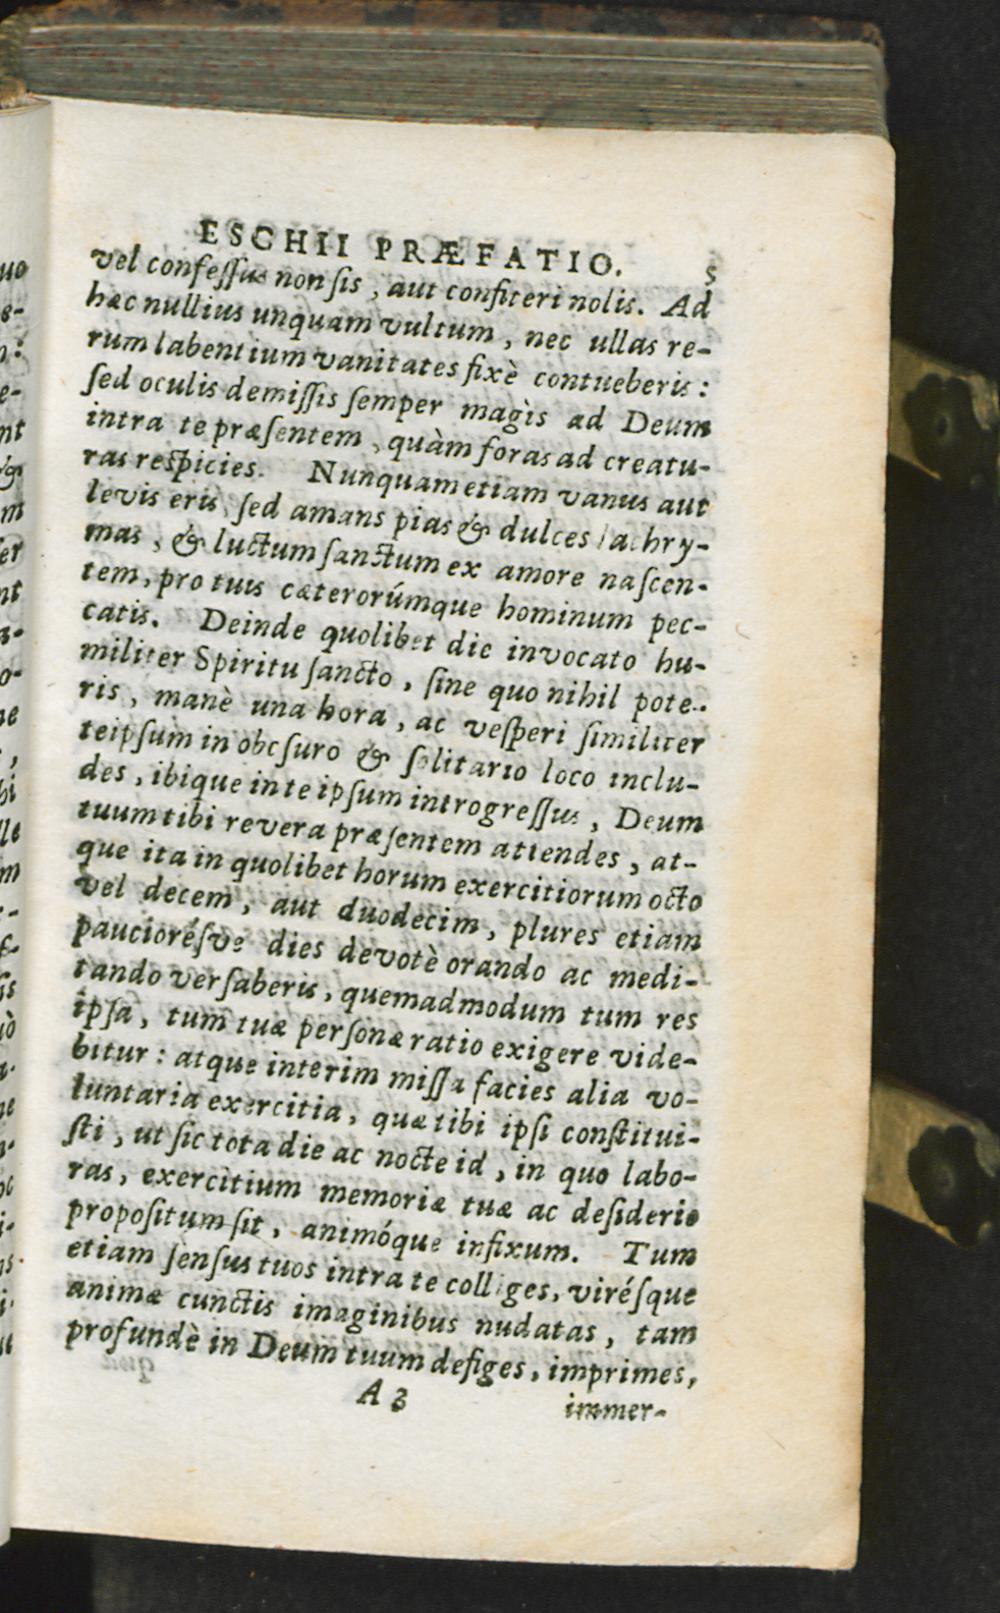 ESCHII PRÆFATIO. 5
vel confeſſus non ſis, aut confiteri nolis. Ad
hæc nullius unquam vultum, nec ullas re-
rum labentium vanitates fixè contueberis:
ſed oculis demiſſis ſemper magìs ad Deum
intra te præſentem, quàm foras ad creatu-
ras reſpicies. Nunquam etiam vanus aut
levis eris, ſed amans pias & dulces lachry-
mas, & luctum ſanctum ex amore naſcen-
tem, pro tuis cæterorúmque hominum pec-
catis. Deinde quolibet die invocato hu-
militer Spiritu ſancto, ſine quo nihil pote-
ris, manè una hora, ac veſperi ſimiliter
teipſum in obcſuro & ſolitario loco inclu-
des, ibique in te ipſum introgreſſus, Deum
tuum tibi revera præſentem attendes, at-
que ita in quolibet horum exercitiorum octo
vel decem, aut duodecim, plures etiam
paucioréſve dies devotè orando ac medi-
tando verſaberis, quemadmodum tum res
ipſa, tum tuæ perſonæ ratio exigere vide-
bitur: atque interim miſſa facies alia vo-
luntaria exercitia, quæ tibi ipſi conſtitui-
ſti, ut ſic tota die ac nocte id, in quo labo-
ras, exercitium memoriæ tuæ ac deſiderio
propoſitum ſit, animóque infixum. Tum
etiam ſenſus tuos intra te colliges, viréſque
animæ cunctis imaginibus nudatas, tam
profundè in Deum tuum defiges, imprimes,
A 3 immer-